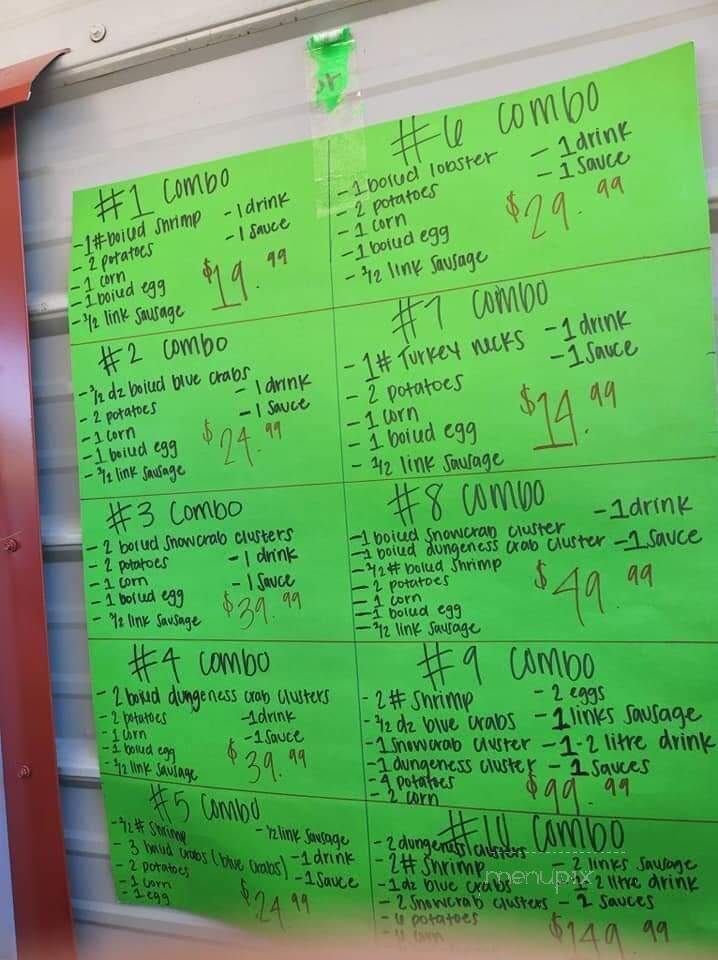 or
#1 Combo
-1# boiled shrimp -1 drink
- 2 potatoes -1 sauce
- 1 corn
- 1 boiled egg
- 1/2 link sausage
$19.99
#2 Combo
- 1/2 dz boiled blue crabs
- 2 potatoes - 1 drink
- 1 corn - 1 sauce
- 1 boiled egg
- 1/2 link sausage
$24.99
#3 Combo
- 2 boiled snowcrab clusters
- 2 potatoes - 1 drink
- 1 corn - 1 sauce
- 1 boiled egg
- 1/2 link sausage
$39.99
#4 Combo
- 2 boiled dungeness crab clusters
- 2 potatoes -1 drink
- 1 corn -1 sauce
- 1 boiled egg
- 1/2 link sausage
$39.99
#5 Combo
- 1/2 # shrimp - 1/2 link sausage
- 3 boiled crabs (blue crabs) -1 drink
- 2 potatoes -1 sauce
- 1 corn
- 1 egg
$24.99
#6 Combo
-1 boiled lobster -1 drink
- 2 potatoes -1 sauce
-1 corn
-1 boiled egg
- 1/2 link sausage
$29.99
#7 Combo
- 1# Turkey necks -1 drink
- 2 potatoes -1 sauce
-1 corn
- 1 boiled egg
- 1/2 link sausage
$14.99
#8 Combo
-1 boiled snowcrab cluster -1 drink
-1 boiled dungeness crab cluster -1 sauce
- 1/2 # boiled shrimp
- 2 potatoes
- 1 corn
-1 boiled egg
- 1/2 link sausage
$49.99
#9 Combo
- 2# shrimp - 2 eggs
- 1/2 dz blue crabs - 1 links sausage
-1 snowcrab cluster -1-2 litre drink
-1 dungeness cluster - 1 sauces
- 4 potatoes
- 2 corn
$99.99
#10 Combo
- 2 dungeness clusters
- 2# shrimp - 2 links sausage
-1 dz blue crabs 2 litre drink
- 2 snowcrab clusters - 2 sauces
- 6 potatoes
- 4 corn
$149.99
menupix